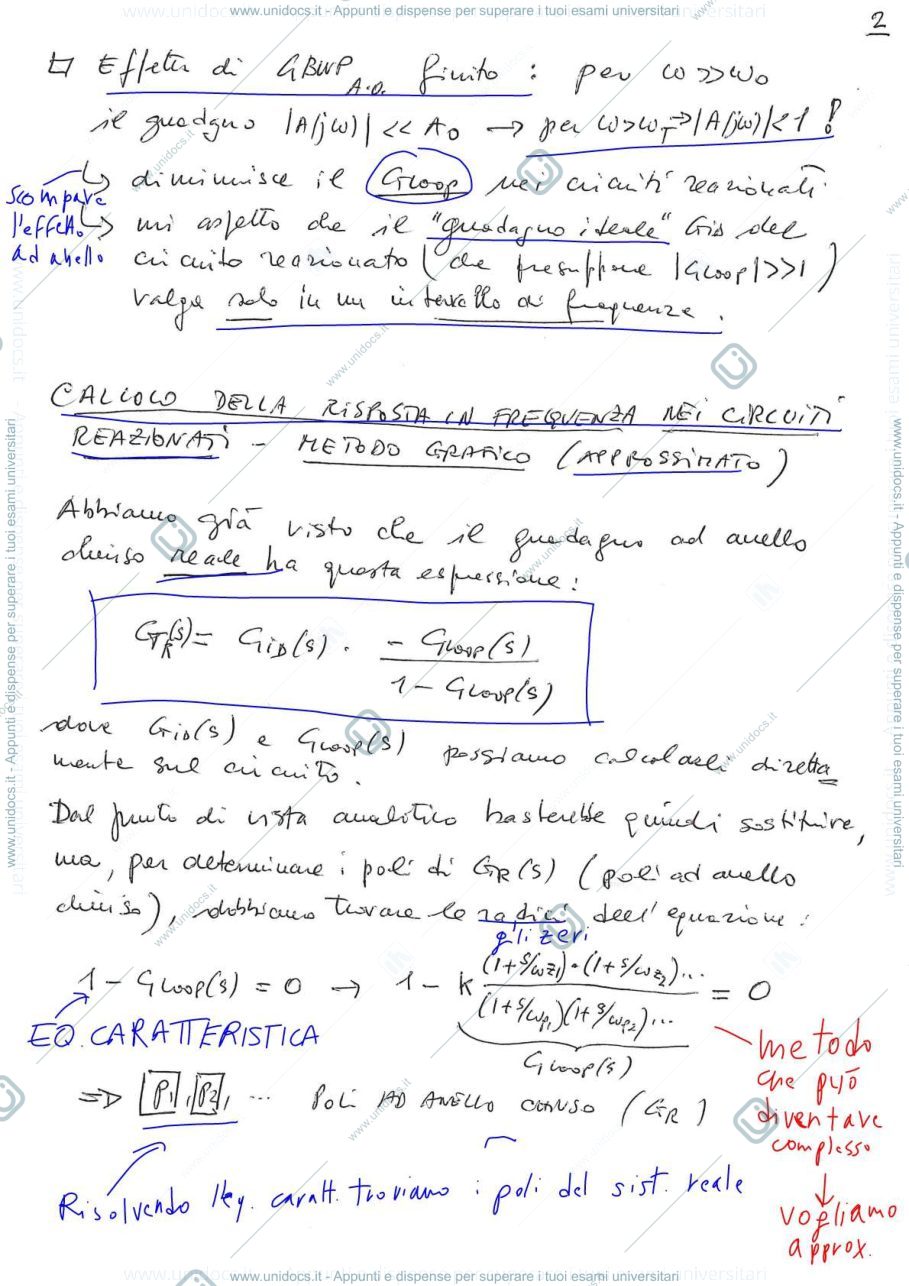 www.unidocs.it - Appunti e dispense per superare i tuoi esami universitari
2
Effetti di GBWP A.O. finito : per ω>>ω0
il guadagno |A(jω)| << A0 → per ω>ωT ⇒ |A(jω)|<1 !
↳ diminuisce il Gloop nei circuiti reazionati
scompare l'effetto ad anello
↳ mi aspetto che il "guadagno ideale" GiD del
circuito reazionato (che presuppone |Gloop|>>1)
valga solo in un intervallo di frequenze.
CALCOLO DELLA RISPOSTA IN FREQUENZA NEI CIRCUITI
REAZIONATI - METODO GRAFICO (APPROSSIMATO)
Abbiamo già visto che il guadagno ad anello
chiuso reale ha questa espressione:
GR(s) = GiD(s) · -Gloop(s) / 1 - Gloop(s)
dove GiD(s) e Gloop(s) possiamo calcolarli diretta
mente sul circuito.
Dal punto di vista analitico basterebbe quindi sostituire,
ma, per determinare i poli di GR(s) (poli ad anello
chiuso), dobbiamo trovare le radici dell'equazione:
gli zeri
1 - Gloop(s) = 0 → 1 - k (1+s/ωz1)·(1+s/ωz2)... / (1+s/ωp1)(1+s/ωp2)... = 0
Gloop(s)
EQ. CARATTERISTICA
⇒ P1, P2, ... POLI AD ANELLO CHIUSO (GR)
metodo
che può
diventare
complesso
↓
vogliamo
approx.
Risolvendo l'eq. caratt. troviamo i poli del sist. reale
www.unidocs.it - Appunti e dispense per superare i tuoi esami universitari